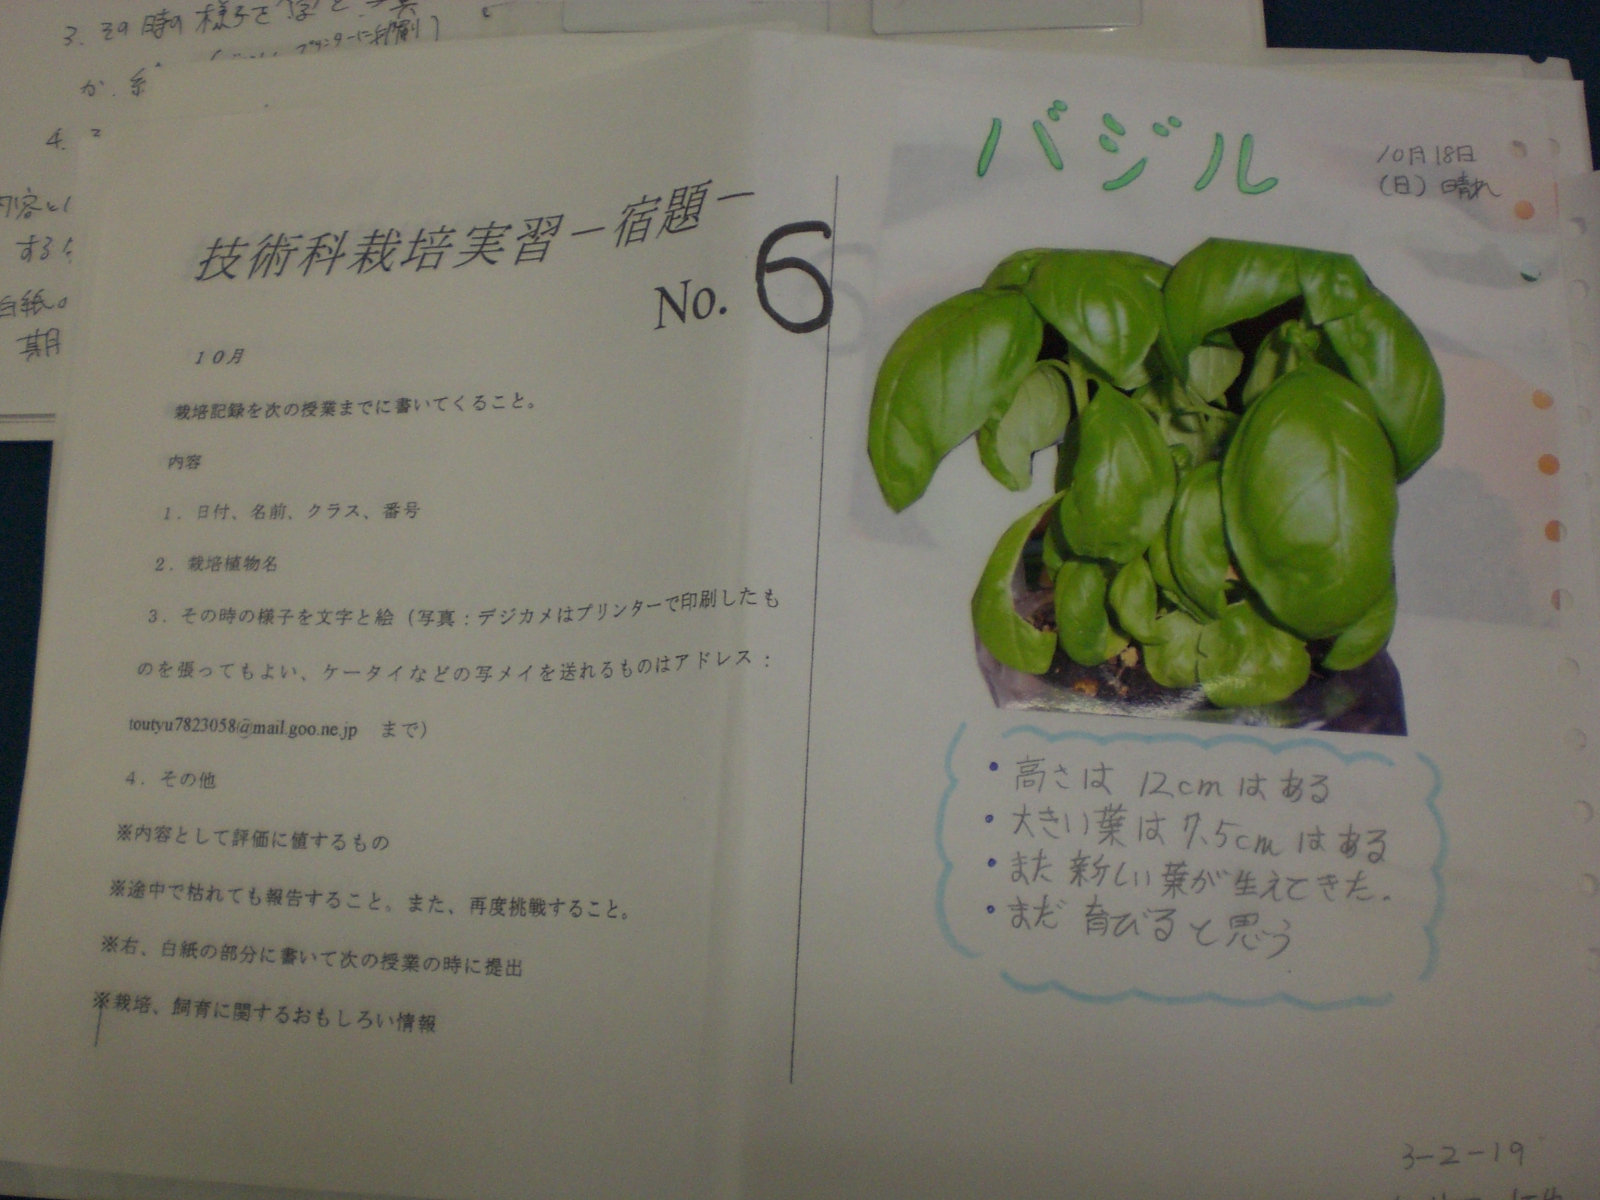 3. その時の様子を
プリンターに印刷)
か.
4.
する
白紙。
期
技術科栽培実習－宿題－
No. 6
10月
栽培記録を次の授業までに書いてくること。
内容
1．日付、名前、クラス、番号
2．栽培植物名
3．その時の様子を文字と絵（写真：デジカメはプリンターで印刷したも
のを張ってもよい、ケータイなどの写メイを送れるものはアドレス：
toutyu7823058@mail.goo.ne.jp　まで）
4．その他
※内容として評価に値するもの
※途中で枯れても報告すること。また、再度挑戦すること。
※右、白紙の部分に書いて次の授業の時に提出
※栽培、飼育に関するおもしろい情報
バジル
10月18日
(日) 晴れ
・高さは 12cm はある
・大きい葉は 7.5cm はある
・また 新しい葉が生えてきた.
・まだ 育びると思う
3-2-19